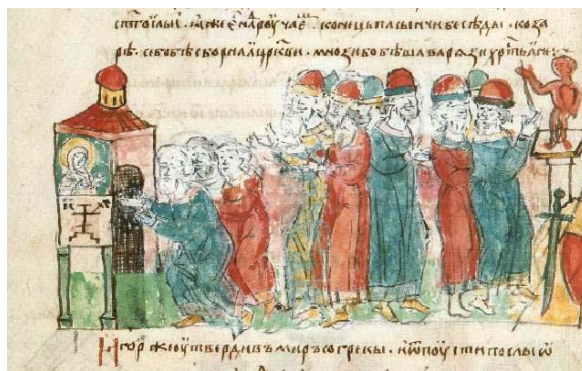 ст҃гоильи . ꙗже єⷭ҇ наⷣроучаеⷨ конець пасынчи бесѣды . коза
рѣ . се бо бѣ сборнаꙗ цр҃кви . мнози бо бѣша варѧзи хрⷭ҇тьꙗни
Игорь же оутвердивъ миръ со греки . и ѿпоусти послы ѿ